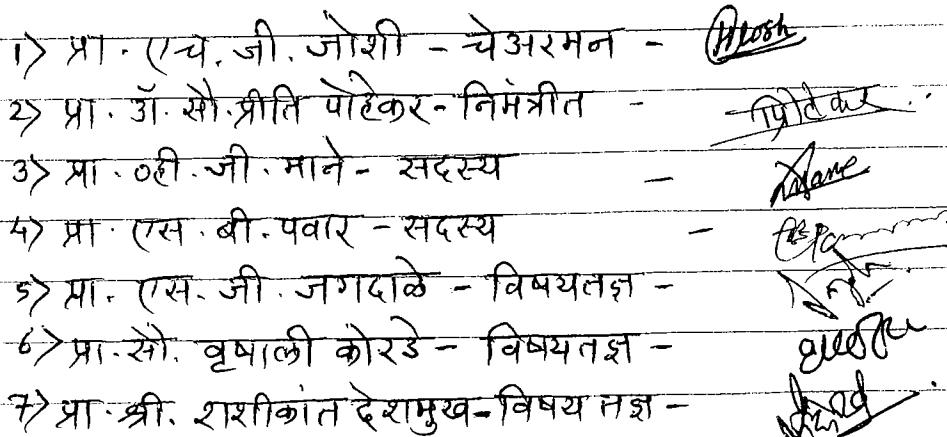 1) प्रा. एच. जी. जोशी - चेअरमन -
2) प्रा. डॉ. सौ. प्रीति पोहेकर - निमंत्रीत -
3) प्रा. व्ही. जी. माने - सदस्य -
4) प्रा. एस. बी. पवार - सदस्य -
5) प्रा. एस. जी. जगदाळे - विषयतज्ञ -
6) प्रा. सौ. वृषाली कोरडे - विषयतज्ञ -
7) प्रा. श्री. शशीकांत देशमुख - विषय तज्ञ -